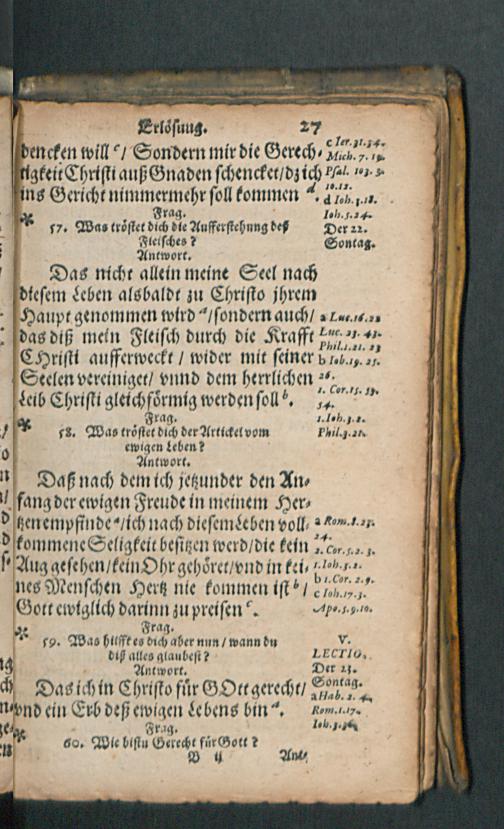 Erlösung. 27
dencken will c/ Sondern mir die Gerech-
tigkeit Christi auß Gnaden schencket/ dz ich
ins Gericht nimmermehr soll kommen d.
c Ier. 31.34.
Mich. 7. 19.
Psal. 103. 3.
10.12.
d Ioh. 3.18.
Ioh. 5.24.
Frag.
57. Was tröstet dich die Aufferstehung deß
Fleisches?
Antwort.
Der 22.
Sontag.
Das nicht allein meine Seel nach
diesem Leben alsbaldt zu Christo jhrem
Haupt genommen wird a/ sondern auch/
das diß mein Fleisch durch die Krafft
CHristi aufferweckt / wider mit seiner
Seelen vereiniget/ vnnd dem herrlichen
Leib Christi gleichförmig werden soll b.
a Luc. 16.22
Luc. 23. 43.
Phil. 1. 21. 23
b Iob. 19. 25.
26.
1. Cor. 15. 53.
54.
1. Ioh. 3. 2.
Phil. 3. 21.
Frag.
58. Was tröstet dich der Artickel vom
ewigen Leben?
Antwort.
Daß nach dem ich jetzunder den An-
fang der ewigen Freude in meinem Her-
tzen empfinde a/ ich nach diesem Leben voll-
kommene Seligkeit besitzen werd/ die kein
Aug gesehen/ kein Ohr gehöret/ vnd in kei-
nes Menschen Hertz nie kommen ist b /
Gott ewiglich darinn zu preisen c.
a Rom. 8. 23.
24.
2. Cor. 5. 2. 3.
1. Ioh. 3. 2.
b 1. Cor. 2. 9.
c Ioh. 17. 3.
Apo. 5. 9. 10.
Frag.
59. Was hilfft es dich aber nun / wann du
diß alles glaubest?
Antwort.
V.
LECTIO.
Der 23.
Sontag.
Das ich in Christo für GOtt gerecht/
vnd ein Erb deß ewigen Lebens bin a.
a Hab. 2. 4.
Rom. 1. 17.
Ioh. 3. 36.
Frag.
60. Wie bistu Gerecht für Gott?
B ij Ant-